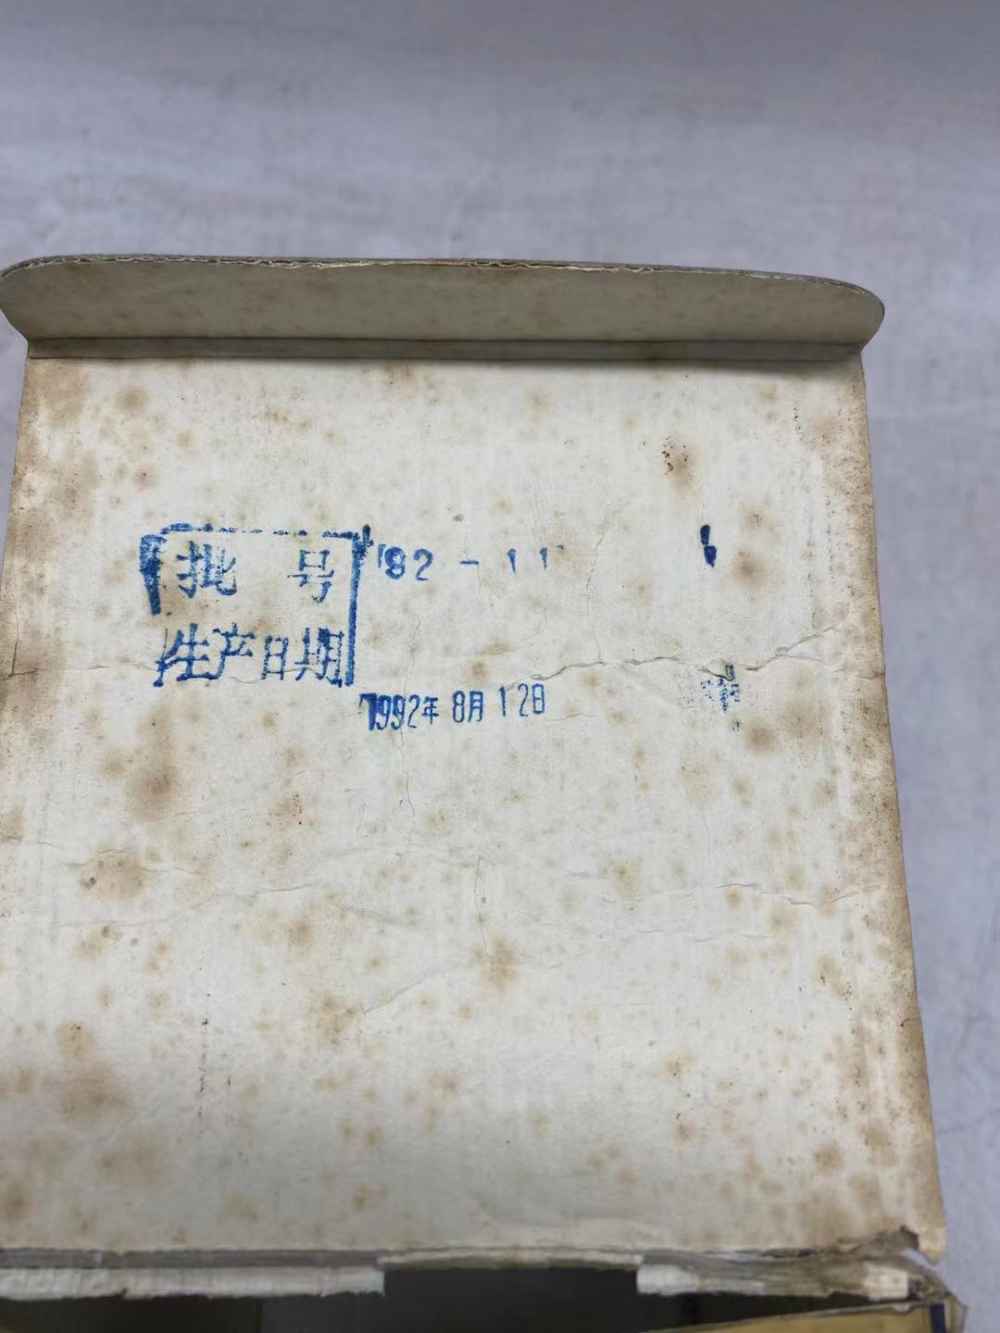 批号 '92-11
生产日期
1992年8月12日